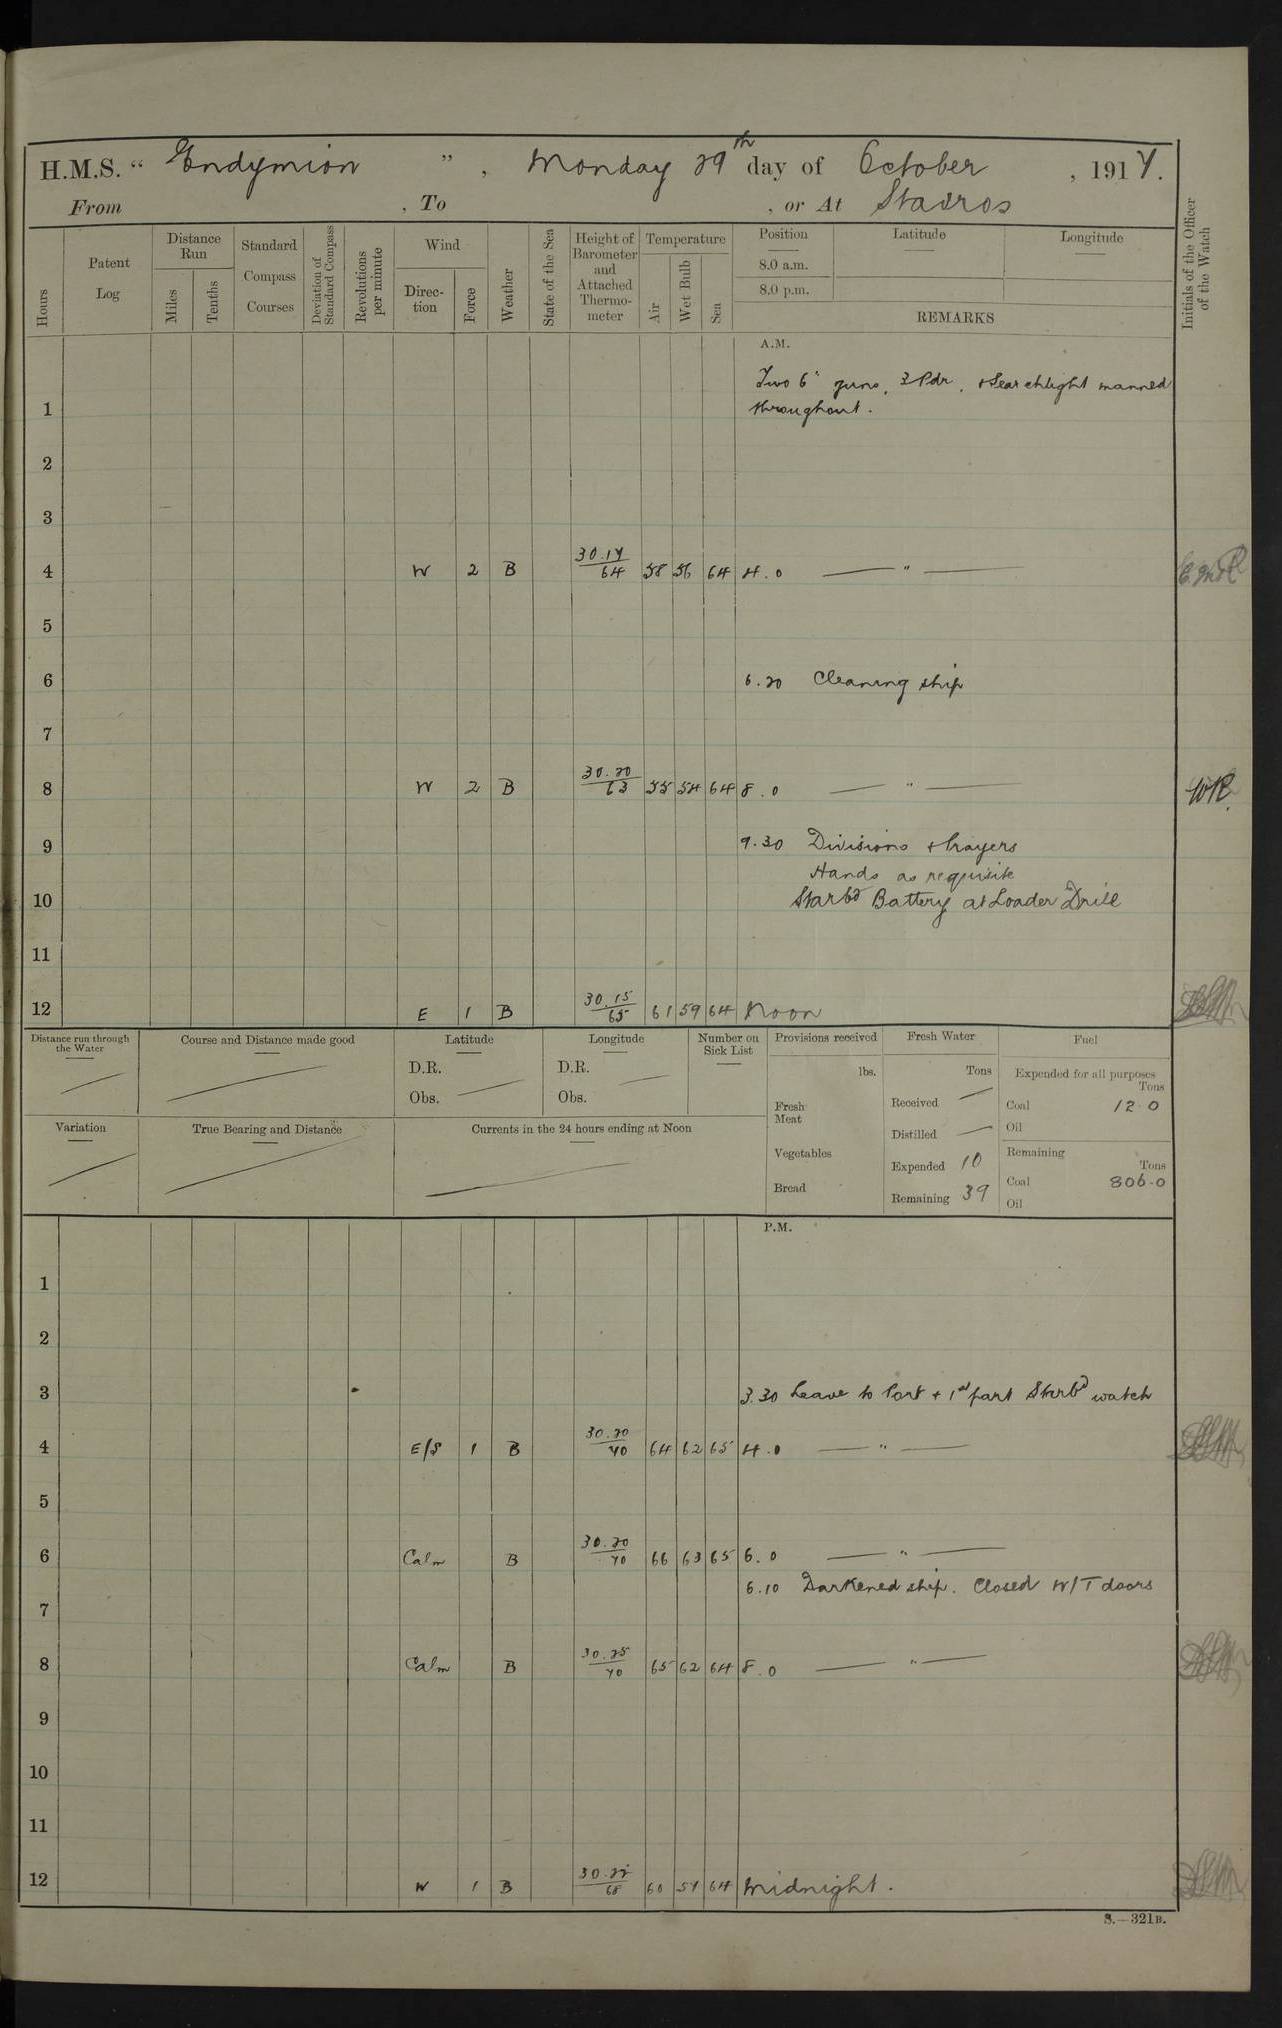 H.M.S. " Endymion ", Monday 29th day of October, 1917.
From , To , or At Stavros
Hours
Patent Log
Distance Run
Miles
Tenths
Standard Compass Courses
Deviation of Standard Compass
Revolutions per minute
Wind
Direc-tion
Force
Weather
State of the Sea
Height of Barometer and Attached Thermo-meter
Temperature
Air
Wet Bulb
Sea
Position
8.0 a.m.
8.0 p.m.
Latitude
Longitude
REMARKS
Initials of the Officer of the Watch
A.M.
Two 6" guns, 3 Pdr, + Searchlight manned
1 throughout.
2
3
4 W 2 B 30.17 / 64 58 56 64 4.0 — " —
5
6 6.20 Cleaning ship
7
8 W 2 B 30.20 / 63 55 54 64 8.0 — " — WR.
9 9.30 Divisions + Prayers
Hands as requisite
10 Starbd Battery at Loader Drill
11
12 E 1 B 30.15 / 65 61 59 64 Noon
Distance run through the Water
Course and Distance made good
Latitude
D.R.
Obs.
Longitude
D.R.
Obs.
Number on Sick List
Provisions received
lbs.
Fresh Meat
Vegetables
Bread
Fresh Water
Tons
Received —
Distilled —
Expended 10
Remaining 39
Fuel
Expended for all purposes
Tons
Coal 12.0
Oil
Remaining
Tons
Coal 806.0
Oil
Variation
True Bearing and Distance
Currents in the 24 hours ending at Noon
P.M.
1
2
3 3.30 Leave to Port + 1st part Starbd watch
4 E/S 1 B 30.20 / 70 64 62 65 4.0 — " —
5
6 Calm B 30.20 / 70 66 63 65 6.0 — " —
6.10 Darkened ship. Closed W/T doors
7
8 Calm B 30.25 / 70 65 62 64 8.0 — " —
9
10
11
12 W 1 B 30.22 / 68 60 57 64 Midnight.
S.—321B.